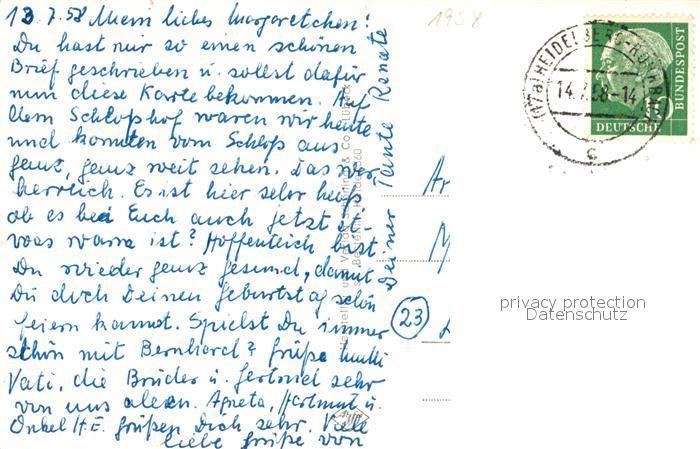 13.7.58 Mein liebes Margaretchen!
Du hast mir so einen schönen
Brief geschrieben u. sollst dafür
nun diese Karte bekommen. Auf
dem Schloßhof waren wir heute
und konnten vom Schloß aus
ganz, ganz weit sehen. Das war
herrlich. Es ist hier sehr heiß
ob es bei Euch auch jetzt et-
was warm ist? Hoffentlich bist
Du wieder ganz gesund, damit
Du doch Deinen Geburtstag schön
feiern kannst. Spielst Du immer
schön mit Bernhard? Grüße Mutti
Vati, die Brüder u. Gertrud sehr
von uns allen. Agneta, Hartmut u.
Onkel H.E. grüßen Dich sehr. Viele
liebe Grüße von
Deiner Tante Renate
1958
HEIDELBERG-ROHRB
14.7.58-14
c
DEUTSCHE
BUNDESPOST
Ar
M
23
privacy protection
Datenschutz